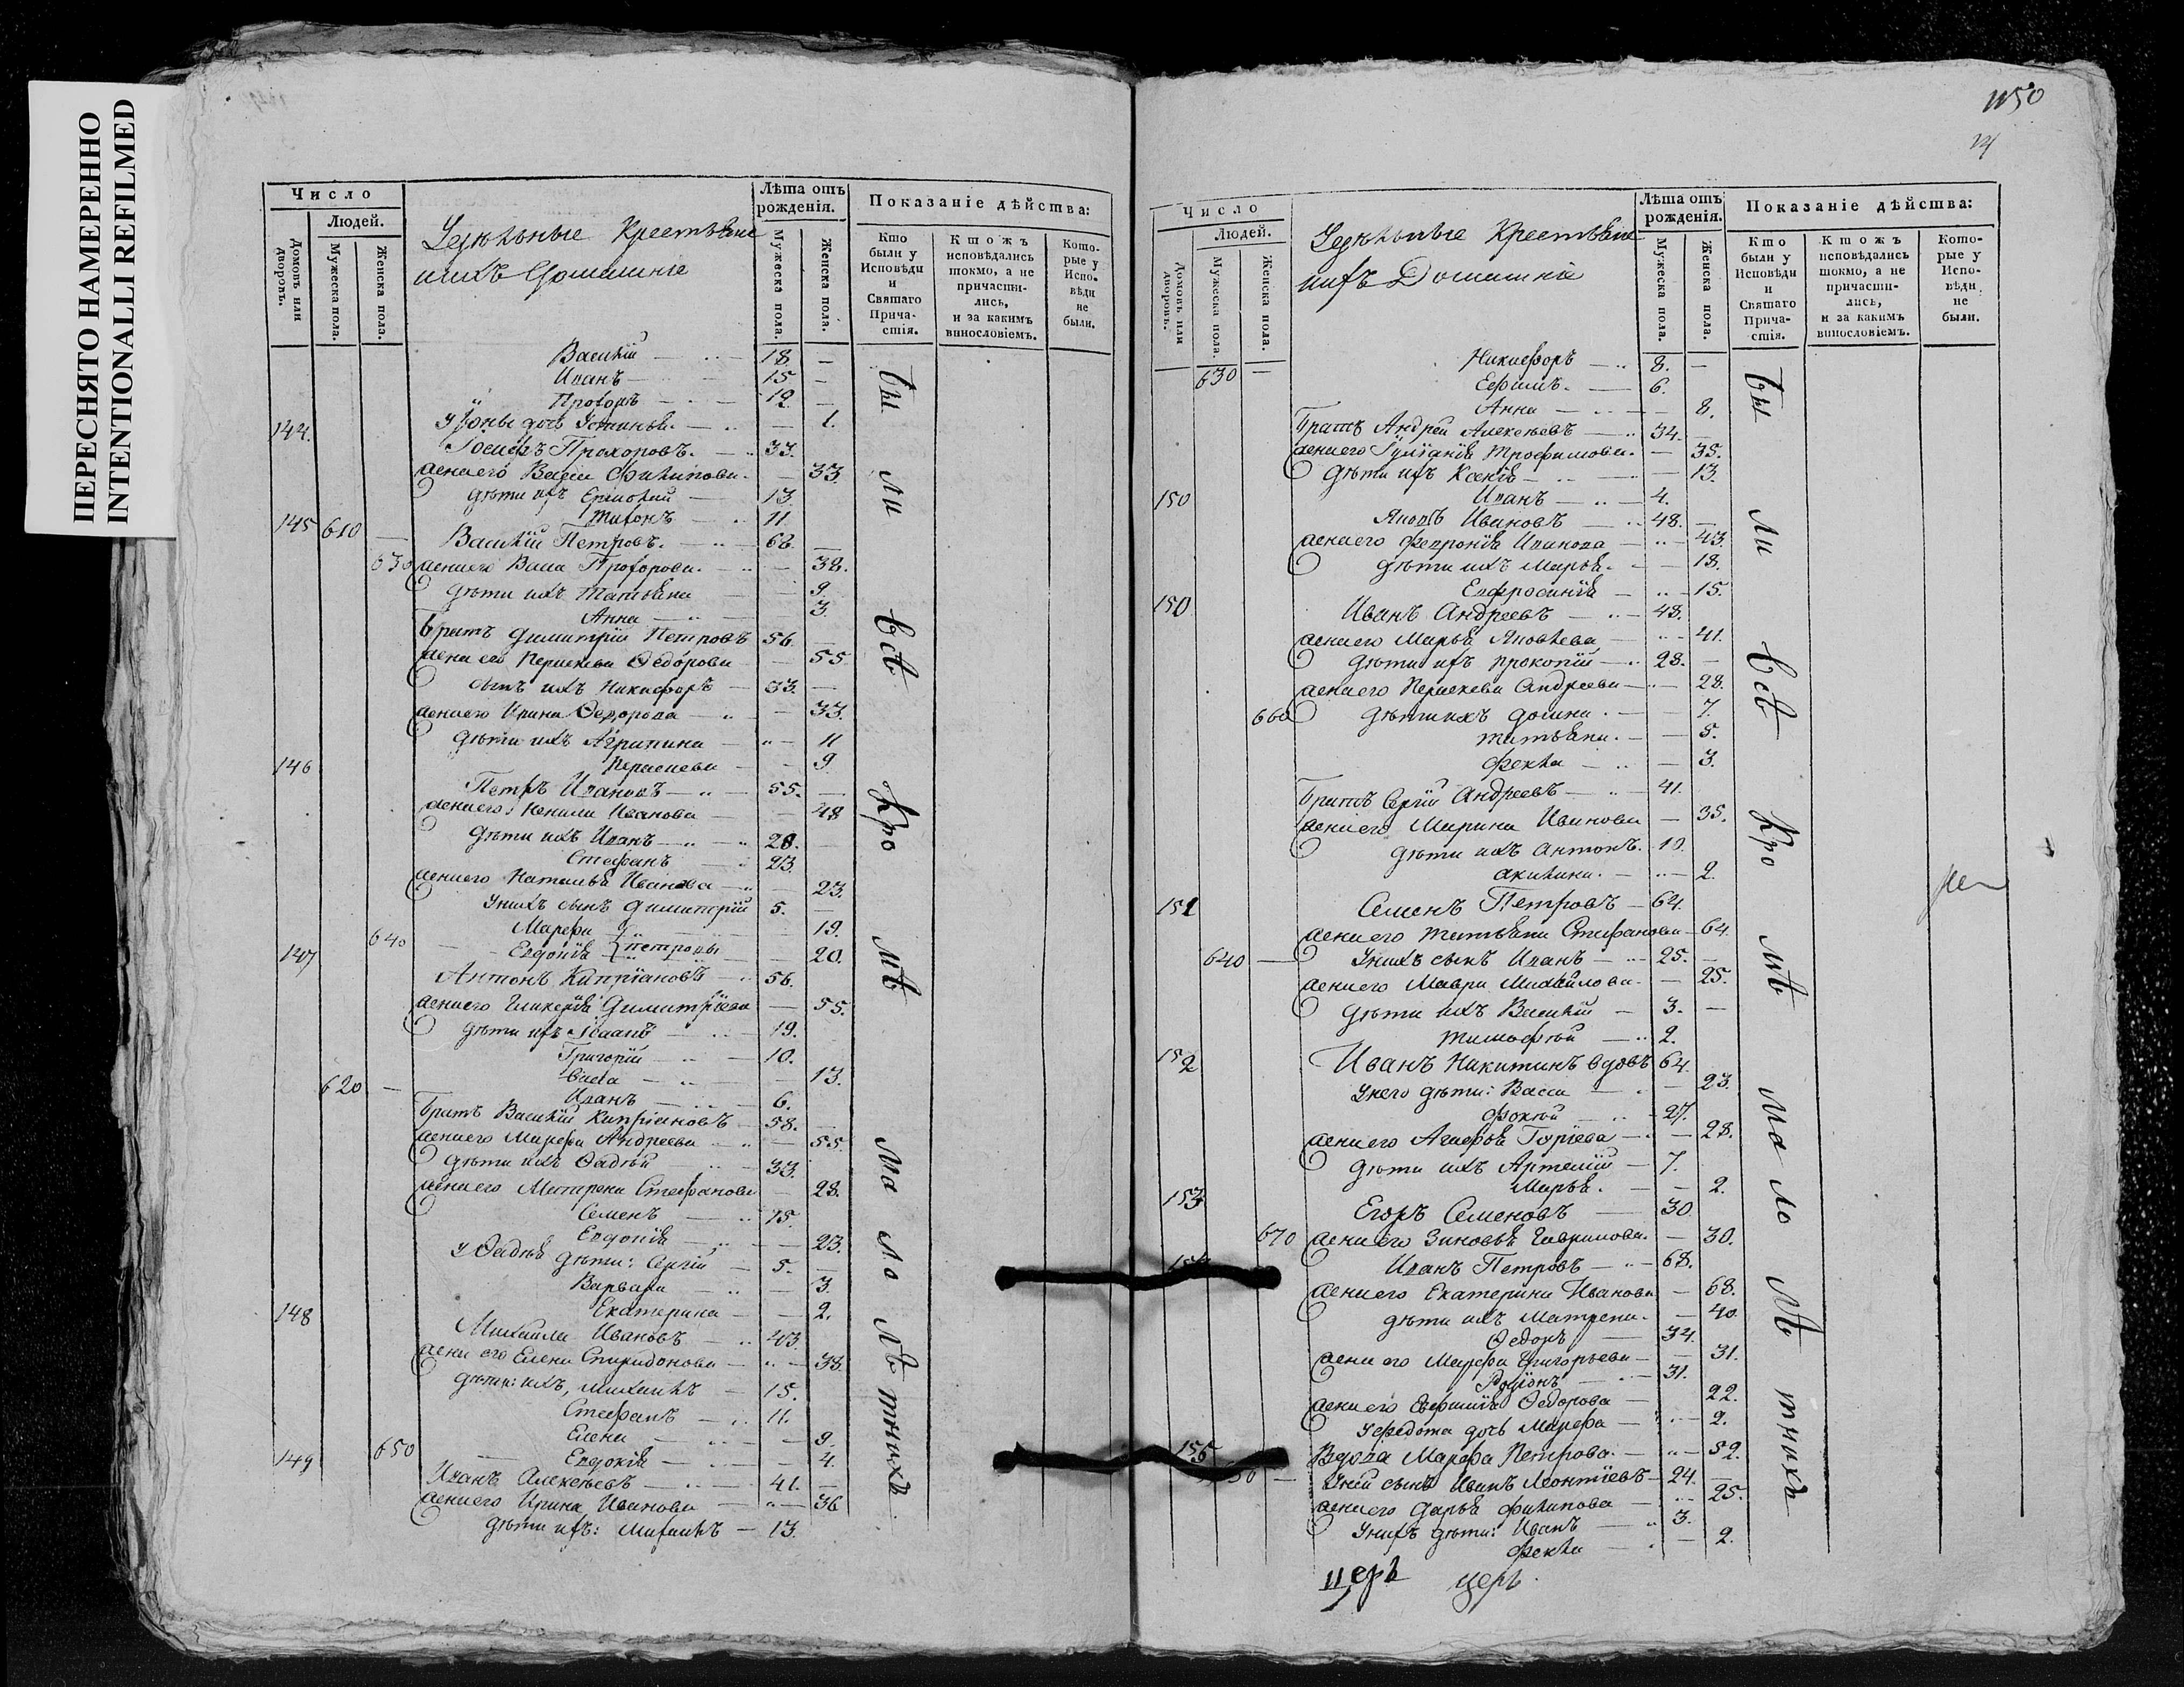 ПЕРЕСНЯТО НАМЕРЕННО
INTENTIONALLI REFILMED
Число
Людей.
Домовъ или дворовъ.
Мужеска пола.
Женска пола.
Удѣльные Крестьяне
ихъ Домашніе
Лѣта отъ рожденія.
Мужеска пола.
Женска пола.
Показаніе дѣйства:
Кто были у Исповѣди и Святаго Причастія.
Кто жъ исповѣдались токмо, а не причастились, и за какимъ винословіемъ.
Которые у Исповѣди не были.
Василій 18
Иванъ 15
Прохоръ 12
дочь Устинья 1.
144. Іосифъ Прохоровъ. 33.
жена его Васса Филипова. 33
дѣти ихъ Ермолай 13
Тихонъ 11
145 610 Василій Петровъ. 62
630 жена его Васса Прохорова. 38.
дѣти ихъ Татьяна 9
Анна 3
братъ Димитрій Петровъ 56
жена его Параскева Ѳедорова 55
сынъ ихъ Никифоръ 33.
жена его Ирина Ѳедорова 33.
дѣти ихъ Агрипина 11
Параскева 9
146 Петръ Ивановъ 55.
жена его Иванова 48
дѣти ихъ Иванъ 28.
Стефанъ 23.
жена его Наталья Иванова 23.
У нихъ сынъ Димитрій 5.
Марфа 19.
640 Евдокія Петровы 20.
147 Антонъ Кипріановъ 56.
жена его Гликерья Димитріева 55.
дѣти ихъ Іоаннъ 19.
Григорій 10.
13.
620 Иванъ 6.
братъ Василій Кипріановъ 58.
жена его Марфа Андреева 55.
дѣти ихъ Ѳадѣй 33.
жена его Матрена Стефанова 28.
Семенъ 15.
Евдокія 23.
у Ѳадѣя дѣти: Сергій 5.
Варвара 3.
Екатерина 2.
148 Михаила Ивановъ 43.
жена его Елена Спиридонова 38.
дѣти: ихъ, Михаилъ 15.
Стефанъ 11.
Елена 9.
650 Евдокія 4.
149 Иванъ Алексѣевъ 41.
жена его Ирина Иванова 36
дѣти ихъ: Михаилъ 13.
бы
ли
всѣ
кро
мѣ
ма
ло
лѣ
тнихъ
1150
Число
Людей.
Домовъ или дворовъ.
Мужеска пола.
Женска пола.
Удѣльные Крестьяне
ихъ Домашніе
Лѣта отъ рожденія.
Мужеска пола.
Женска пола.
Показаніе дѣйства:
Кто были у Исповѣди и Святаго Причастія.
Кто жъ исповѣдались токмо, а не причастились, и за какимъ винословіемъ.
Которые у Исповѣди не были.
Никифоръ 8.
630 Ефимъ. 6.
Анна 8.
братъ Андрей Алексѣевъ 34.
жена его Іуліанія Трофимова. 35.
дѣти ихъ Ксенія 13.
Иванъ 4.
150 Яковъ Ивановъ 48.
жена его Февронія Иванова 43.
дѣти ихъ Марья. 18.
Евфросинія 15.
150 Иванъ Андреевъ 48.
жена его Марья Яковлева 41.
дѣти ихъ Прокопій 28.
жена его Параскева Андреева 28.
660 дѣти ихъ Домна. 7.
Татьяна. 5.
Фекла 3.
братъ Сергій Андреевъ 41.
жена его Марина Иванова 35.
дѣти ихъ Антонъ. 10.
Акилина. 2.
151 Семенъ Петровъ 64.
жена его Татьяна Стефанова 64.
640 У нихъ сынъ Иванъ 25.
жена его Мавра Михайлова. 25.
дѣти ихъ Василій 3.
Тимофѣй 2.
152 Иванъ Никитинъ вдовъ 64.
У него дѣти: Васса 23.
Фокѣй 27.
жена его Агафья Гурьева 28.
дѣти ихъ Артемій 7.
Марья. 2.
153 Егоръ Семеновъ 30
670 жена его Зиновья Гаврилова. 30.
Иванъ Петровъ 68.
жена его Екатерина Иванова 68.
дѣти ихъ Матрена. 40.
Ѳедоръ 34.
жена его Марфа Григорьева 31.
Родіонъ 31.
жена его Ефимія Ѳедорова 22.
дочь Марфа 2.
155 Вдова Марфа Петрова. 52.
У ней сынъ Иванъ Леонтіевъ 24.
жена его Дарья Филипова 25.
У нихъ дѣти: Иванъ 3.
Фекла 2.
бы
ли
всѣ
кро
мѣ
ма
ло
лѣ
тнихъ
церь церь